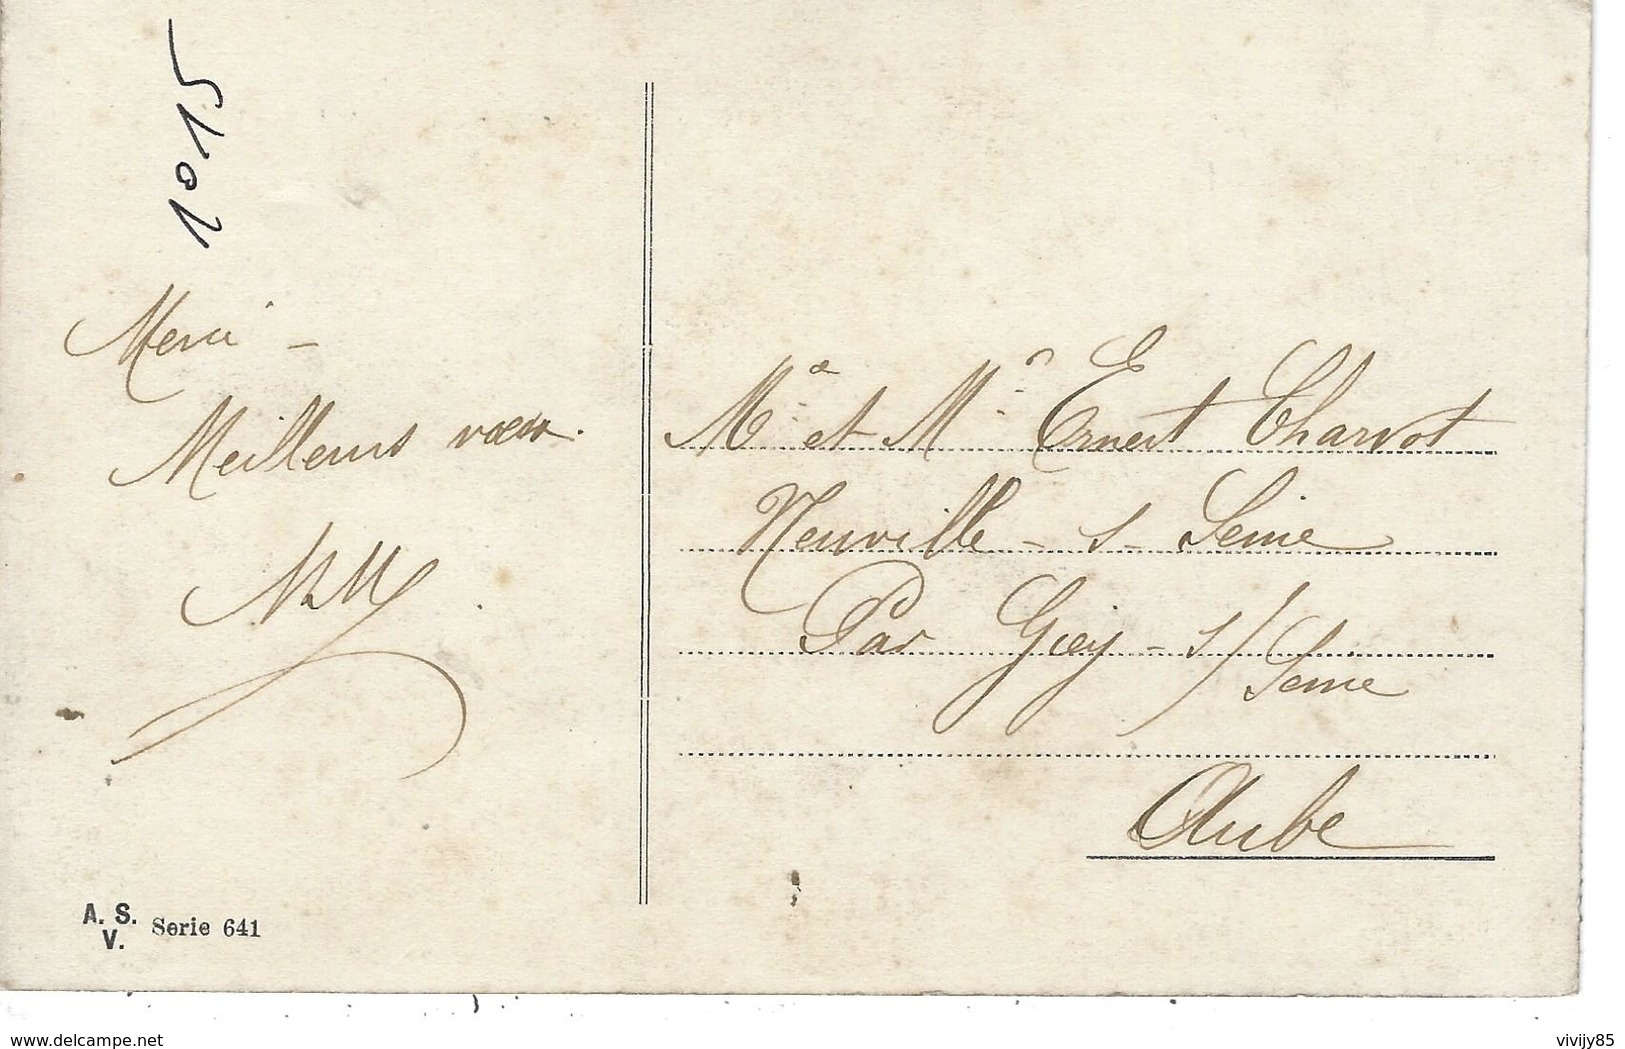 5101
Merci –
Meilleurs vœux.
Me et Mr Ernest Charvot
Neuville - s - Seine
Par Gyey - s/
Seine
Aube
A. S.
V. Serie 641
www.delcampe.net
vivijy85